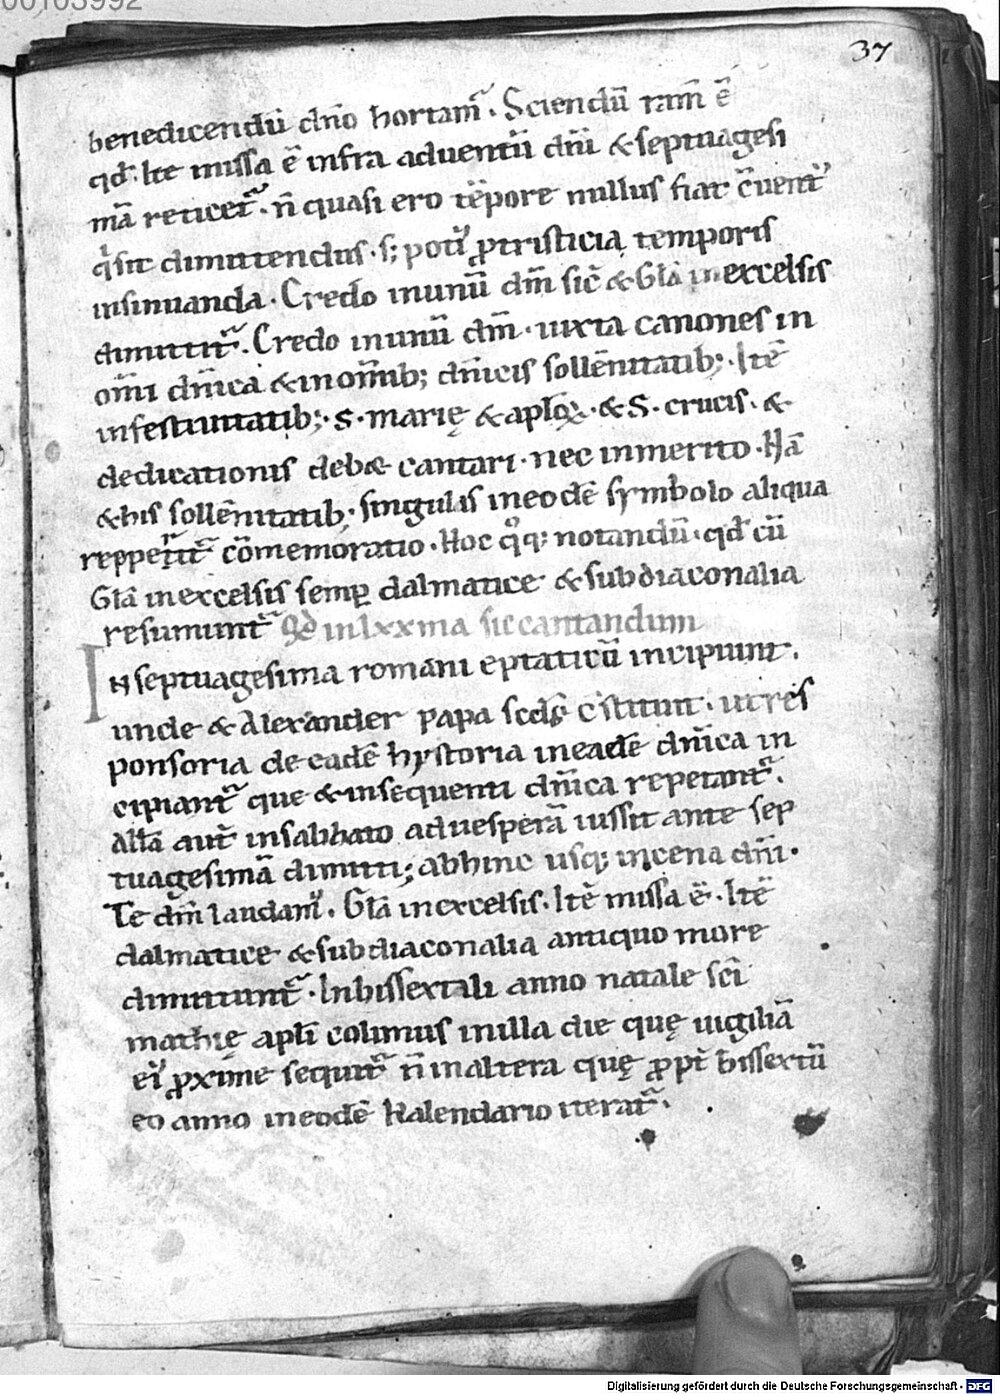 00103992
37
benedicendū dn̄o hortam̄. Sciendū tam̄ ē
qd. Ite missa ē infra aduentū dn̄i & septuagesi
mā reticet᷑. n̄ quasi ero tēpore nullus fiat c̄uent᷒
q̇ sit dimittendus. s; poti᷒ ꝓ tristicia temporis
insinuanda. Credo in unū dm̄ sic̄ & Gl̄a in excelsis
dimittit᷑. Credo in unū dm̄. iuxta canones in
om̄i dn̄ica & in om̄ib; dn̄icis sollēnitatib;. Itē
in festiuitatib;. S. marię & apl̄oꝝ. & S. crucis. &
dedicationis deb& cantari. nec inmerito. Nā
& his sollēnitatib; singulis in eodē symbolo aliqua
repperit᷑ cōmemoratio. Hoc q̊q; notandū. qd cū
Gl̄a in excelsis semꝑ dalmatice & subdiaconalia
resumunt᷑ Qd in lxxma sic cantandum
In septuagesima romani eptaticū incipiunt.
unde & Alexander papa scd̄s c̄stituit. ut res
ponsoria de eadē hystoria in eadē dn̄ica in
cipiant᷑ que & in sequenti dn̄ica repetant᷑.
All̄a aut̄ in sabbato ad uesperā iussit ante sep
tuagesimā dimitti; abhinc usq; in cena dn̄i.
Te dm̄ laudam᷒. Gl̄a in excelsis. Itē missa ē. Itē
dalmatice & subdiaconalia antiquo more
dimittunt᷑. In bissextali anno natale sc̄i
mathię apl̄i colimus in illa die quę uigiliā
ei᷒ ꝓxime sequit᷑ n̄ in altera quę ꝓpt̄ bissextū
eo anno in eodē kalendario iterat᷑.
Digitalisierung gefördert durch die Deutsche Forschungsgemeinschaft - DFG